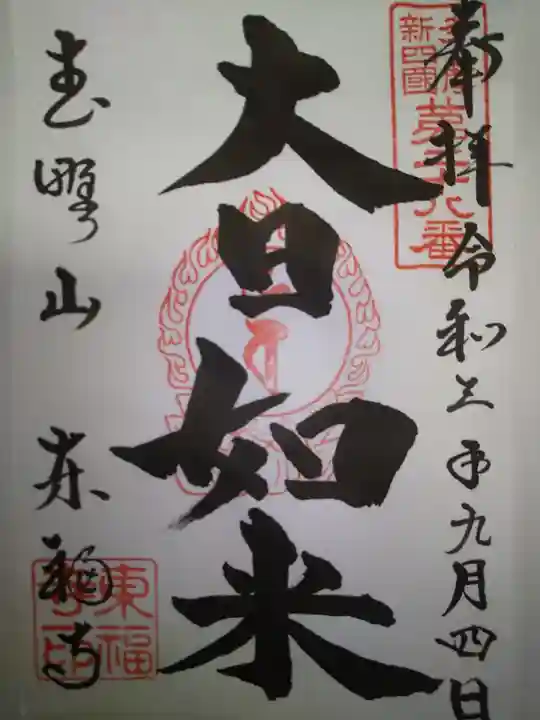 奉拝 令和三年九月四日
新四國
第十八番
大日如来
武野山 東福寺
東福寺印